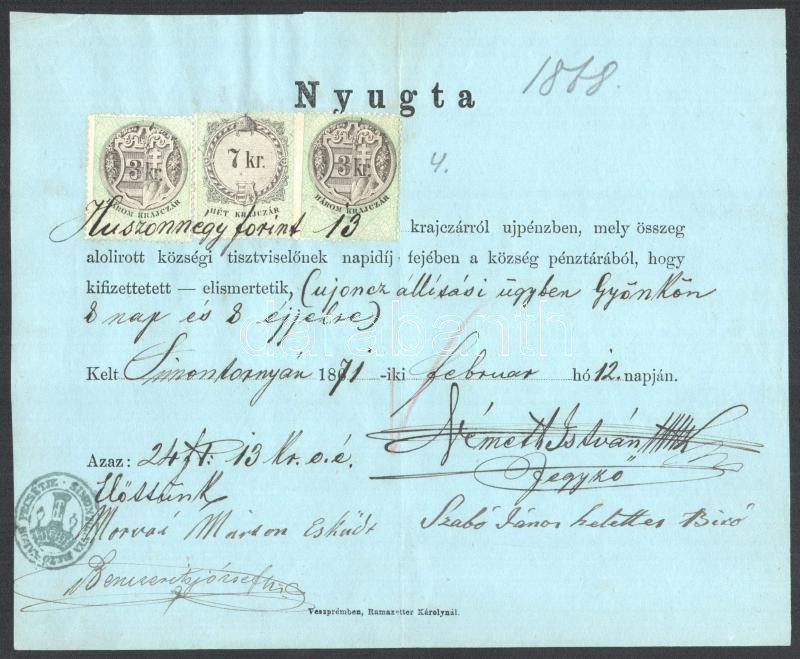 1868.
Nyugta
3 kr.
HÁROM KRAJCZÁR
7 kr.
HÉT KRAJCZÁR
3 kr.
HÁROM KRAJCZÁR
4.
Huszonnégy forint 13 krajczárról ujpénzben, mely összeg
alolirott községi tisztviselőnek napidíj fejében a község pénztárából, hogy
kifizettetett — elismertetik, (ujoncz állitási ügyben Gyönkön
8 nap és 8 éjjelre)
darabanth
Kelt Simontornyán 1871 -iki februar hó 12. napján.
Németh István
Jegyző
Azaz: 24 ft. 13 Kr. o. é.
Előttünk
Morvai Márton Esküdt
Szabó János helettes Biró
József
Veszprémben, Ramazetter Károlynál.